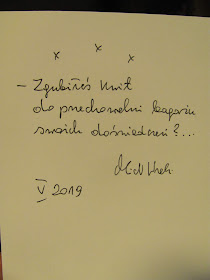 x x x
– Zgubiłeś kwit
do przechowalni bagażu
swoich doświadczeń?...
V 2019